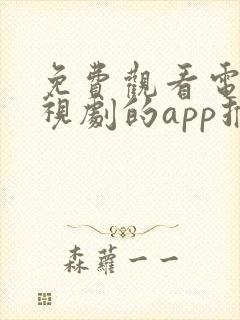 免費觀看電
視劇的app推
森蘿一一